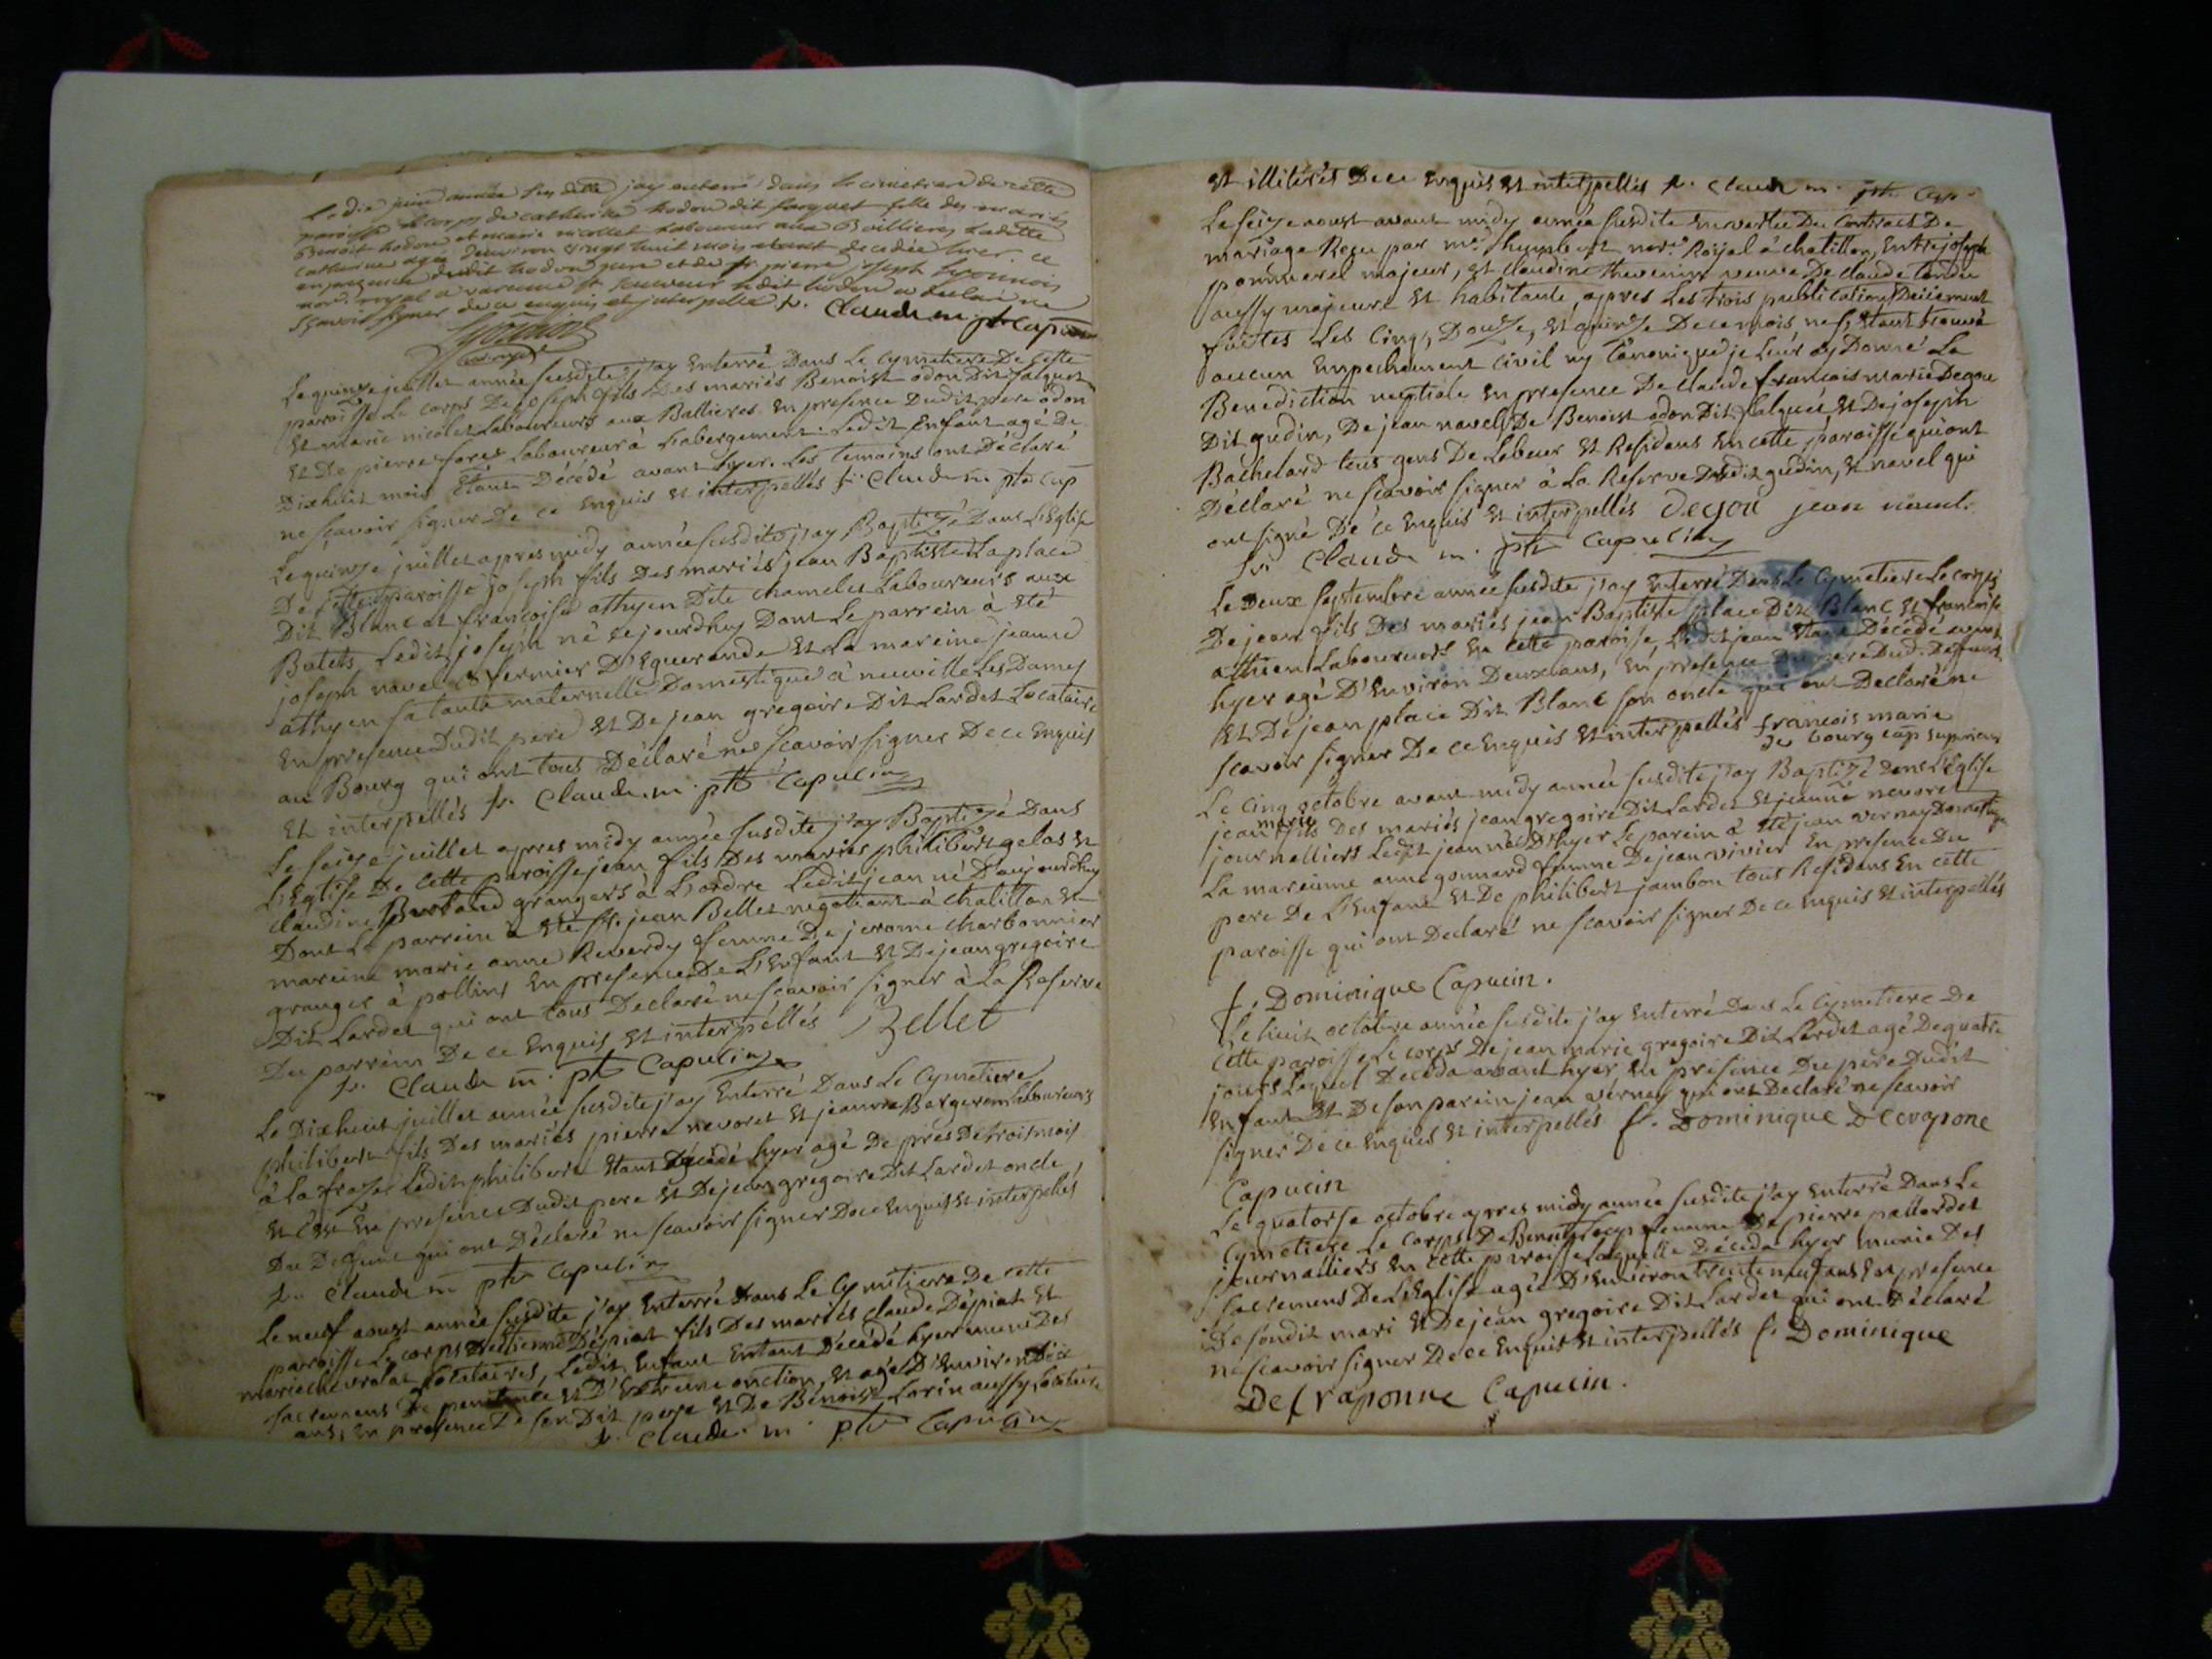 Le dix juin année susditte jay enterré dans le cimetiere de cette
paroisse le corps de catherine hodon dit jaquet fille des mariés
Benoit hodon et marie nicollet laboureur aux Baillieres ladette
catherine agée denviron vingt huit mois etant decedée hier. ce
en presence dudit hodon pere et de sr pierre joseph
nore. royal a varenne st sauveur ledit hodon a declaré ne
sçavoir signer de ce enquis et interpellé fr. Claude m. ptre capucin
Le quinze juillet année susdite j'ay Enterré Dans Le Cymetiere De cette
paroisse Le corps De joseph fils Des mariés Benoist odon Dit jalquet
Et marie nicolet Laboureurs aux Ballieres En presence Dudit pere odon
Et De pierre fores Laboureur à Labergement. Ledit Enfant agé De
Dixhuit mois Etant Décédé avant hyer. Les temoins ont Déclaré
ne scavoir signer De ce Enquis et interpellés fr. Claude m. ptre cap
Le quinze juillet apres midy année susdite j'ay Baptizé Dans L'Eglise
De cette paroisse joseph fils Des mariés jean Baptiste La place
Dit Blanc et françoise athyen Dite chamelet Laboureurs aux
Batets, Ledit joseph né cejourdhuy Dont Le parrein à Eté
joseph navel fermier D'Eguerande Et La mareine jeanne
athyen sa tante maternelle Domestique à neuville Les Dames
En presence Dudit pere Et De jean gregoire Dit Lardet Locataire
au Bourg qui ont tous Déclaré ne scavoir signer De ce Enquis
Et interpellés fr. Claude m. ptre Capucin
Le seize juillet apres midy année susdite j'ay Baptizé Dans
L'Eglise De cette paroisse jean fils Des mariés philibert gelas et
claudine Burtand grangers à L'ordre Ledit jean né D'aujourdhuy
Dont Le parrein à Eté sr. jean Bellet negotiant à chatillon Et
mareine marie anne Reverdy femme De jerome charbonnier
granger à pollins En presence De L'Enfant Et De jean gregoire
Dit Lardet qui ont tous Declaré ne scavoir signer à La Reserve
Du parrein De ce Enquis Et interpéllés Bellet
fr. Claude m. ptre Capucin
Le Dixhuit juillet année susdite j'ay Enterré Dans Le Cymetiere
philibert fils Des mariés pierre nevoret Et jeanne Bergeron Laboureurs
à La Ledit philibert Etant Décédé hyer agé De près De trois mois
Et C'est En presence Dudit pere Et De jean gregoire Dit Lardet oncle
Du Défunt qui ont Déclaré ne scavoir signer De ce Enquis Et interpellés
fr. Claude m ptre Capucin
Le neuf aoust année susdite j'ay Enterré Dans Le Cymetiere De cette
paroisse Le corps D'etienne Dépiat fils Des mariés claude Dépiat Et
marie chevrolat Locataires, Ledit Enfant Entant Décédé hyer muni Des
sacremens De penitence et D'Extreme onction, Et agé D'Environ Dix
ans, En presence De son Dit pere Et De Benoist Lorin aussy Locataire
fr. Claude. m. ptre Capucin
Et illiterés De ce Enquis Et interpellés fr. Claude m. ptre Cap.
Le seize aoust avant midy année susdite En vertu Du Contract De
mariage Reçu par me. nore. Royal à chatillon, Entre joseph
pommerel majeur, et Claudine thevenin veuve De Claude tondu
aussy majeure Et habitante, apres Les trois publications Deüement
faittes Les Cinq, Douze, Et quinze De ce mois, ne s'Etant trouvé
aucun Empechement Civil ny Canonique je Leur ay Donné La
Benediction nuptiale En presence De Claude francois marie Degou
Dit gudin, De jean navel, De Benoist odon Dit jalquet, Et De joseph
Bachelard tous gens De Labeur Et Residens En cette paroisse qui ont
Déclaré ne scavoir signer à La Reserve Dudit gudin, Et navel qui
ont signé De ce Enquis Et interpellés Degou jean navel.
fr. Claude m. ptre Capucin
Le Deux septembre année susdite j'ay Enterré Dans Le Cymetiere Le corps
De jean fils Des mariés jean Baptiste place Dit Blanc Et francoise
athien Laboureurs En cette paroisse, Ledit jean Etant Décédé avant
hyer agé D'Environ Deux ans, En presence Du pere Dud. Deffunt
Et De jean place Dit Blanc son oncle qui ont Declaré ne
scavoir signer De ce Enquis Et interpellés françois marie
de bourg cap superieur
Le Cinq octobre avant midy année susdite j'ay Baptizé dans L'Eglise
jean marie fils Des mariés jean gregoire Dit Lardet Et jeanne nevoret
journalliers Ledit jean né D'hyer Le parein à Eté jean vernay Domestique
La mareinne anne gonnard femme De jean vivier En presence Du
pere De L'Enfant Et De philibert jambon tous Residans En cette
paroisse qui ont Declaré ne scavoir signer De ce Enquis Et interpellés
f. Dominique Capucin.
Le huit octobre année susdite j'ay Enterré Dans Le Cymetiere De
Cette paroisse Le corps De jean marie gregoire Dit Lardet agé De quatre
jours Lequel Deceda avant hyer En presence Du pere Dudit
Enfant Et De son parein jean vernay qui ont Declaré ne scavoir
signer De ce Enquis Et interpellés f. Dominique De craponne
Capucin
Le quatorse octobre apres midy année susdite j'ay Enterré Dans Le
Cymetiere Le Corps De Benoite femme De pierre pallordet
journaliers En cette paroisse Laquelle Déceda hyer munie Des
sacremens De L'Eglise agée D'Environ trente neuf ans En presence
De sondit mari Et De jean gregoire Dit Lardet qui ont Déclaré
ne scavoir signer De ce Enquis Et interpellés f. Dominique
De craponne Capucin.